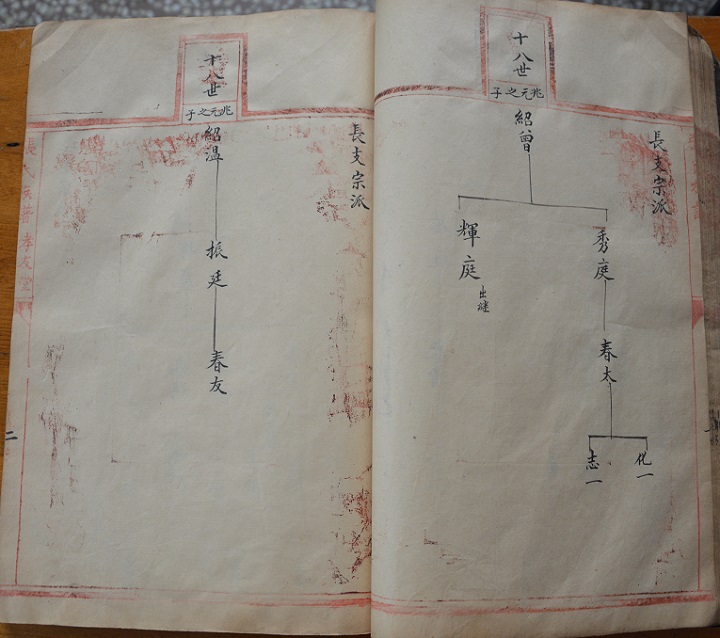 十八世
兆元之子
長支宗派
紹曾
秀庭
輝庭
出継
春太
化一
志一
十八世
兆元之子
長支宗派
紹温
振廷
春友